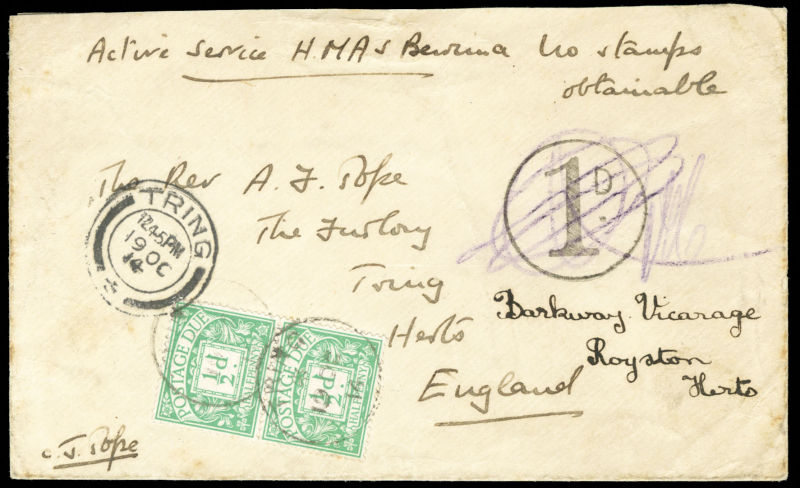 Active Service H.M.A.S Berrima No stamps
obtainable
The Rev A. J. Pope
The Furlong
Tring
Herts
England
TRING
12.45PM
19 OC
14
1D.
Barkway Vicarage
Royston
Herts
POSTAGE DUE
½d
HALFPENNY
POSTAGE DUE
½d
HALFPENNY
C. J. Pope